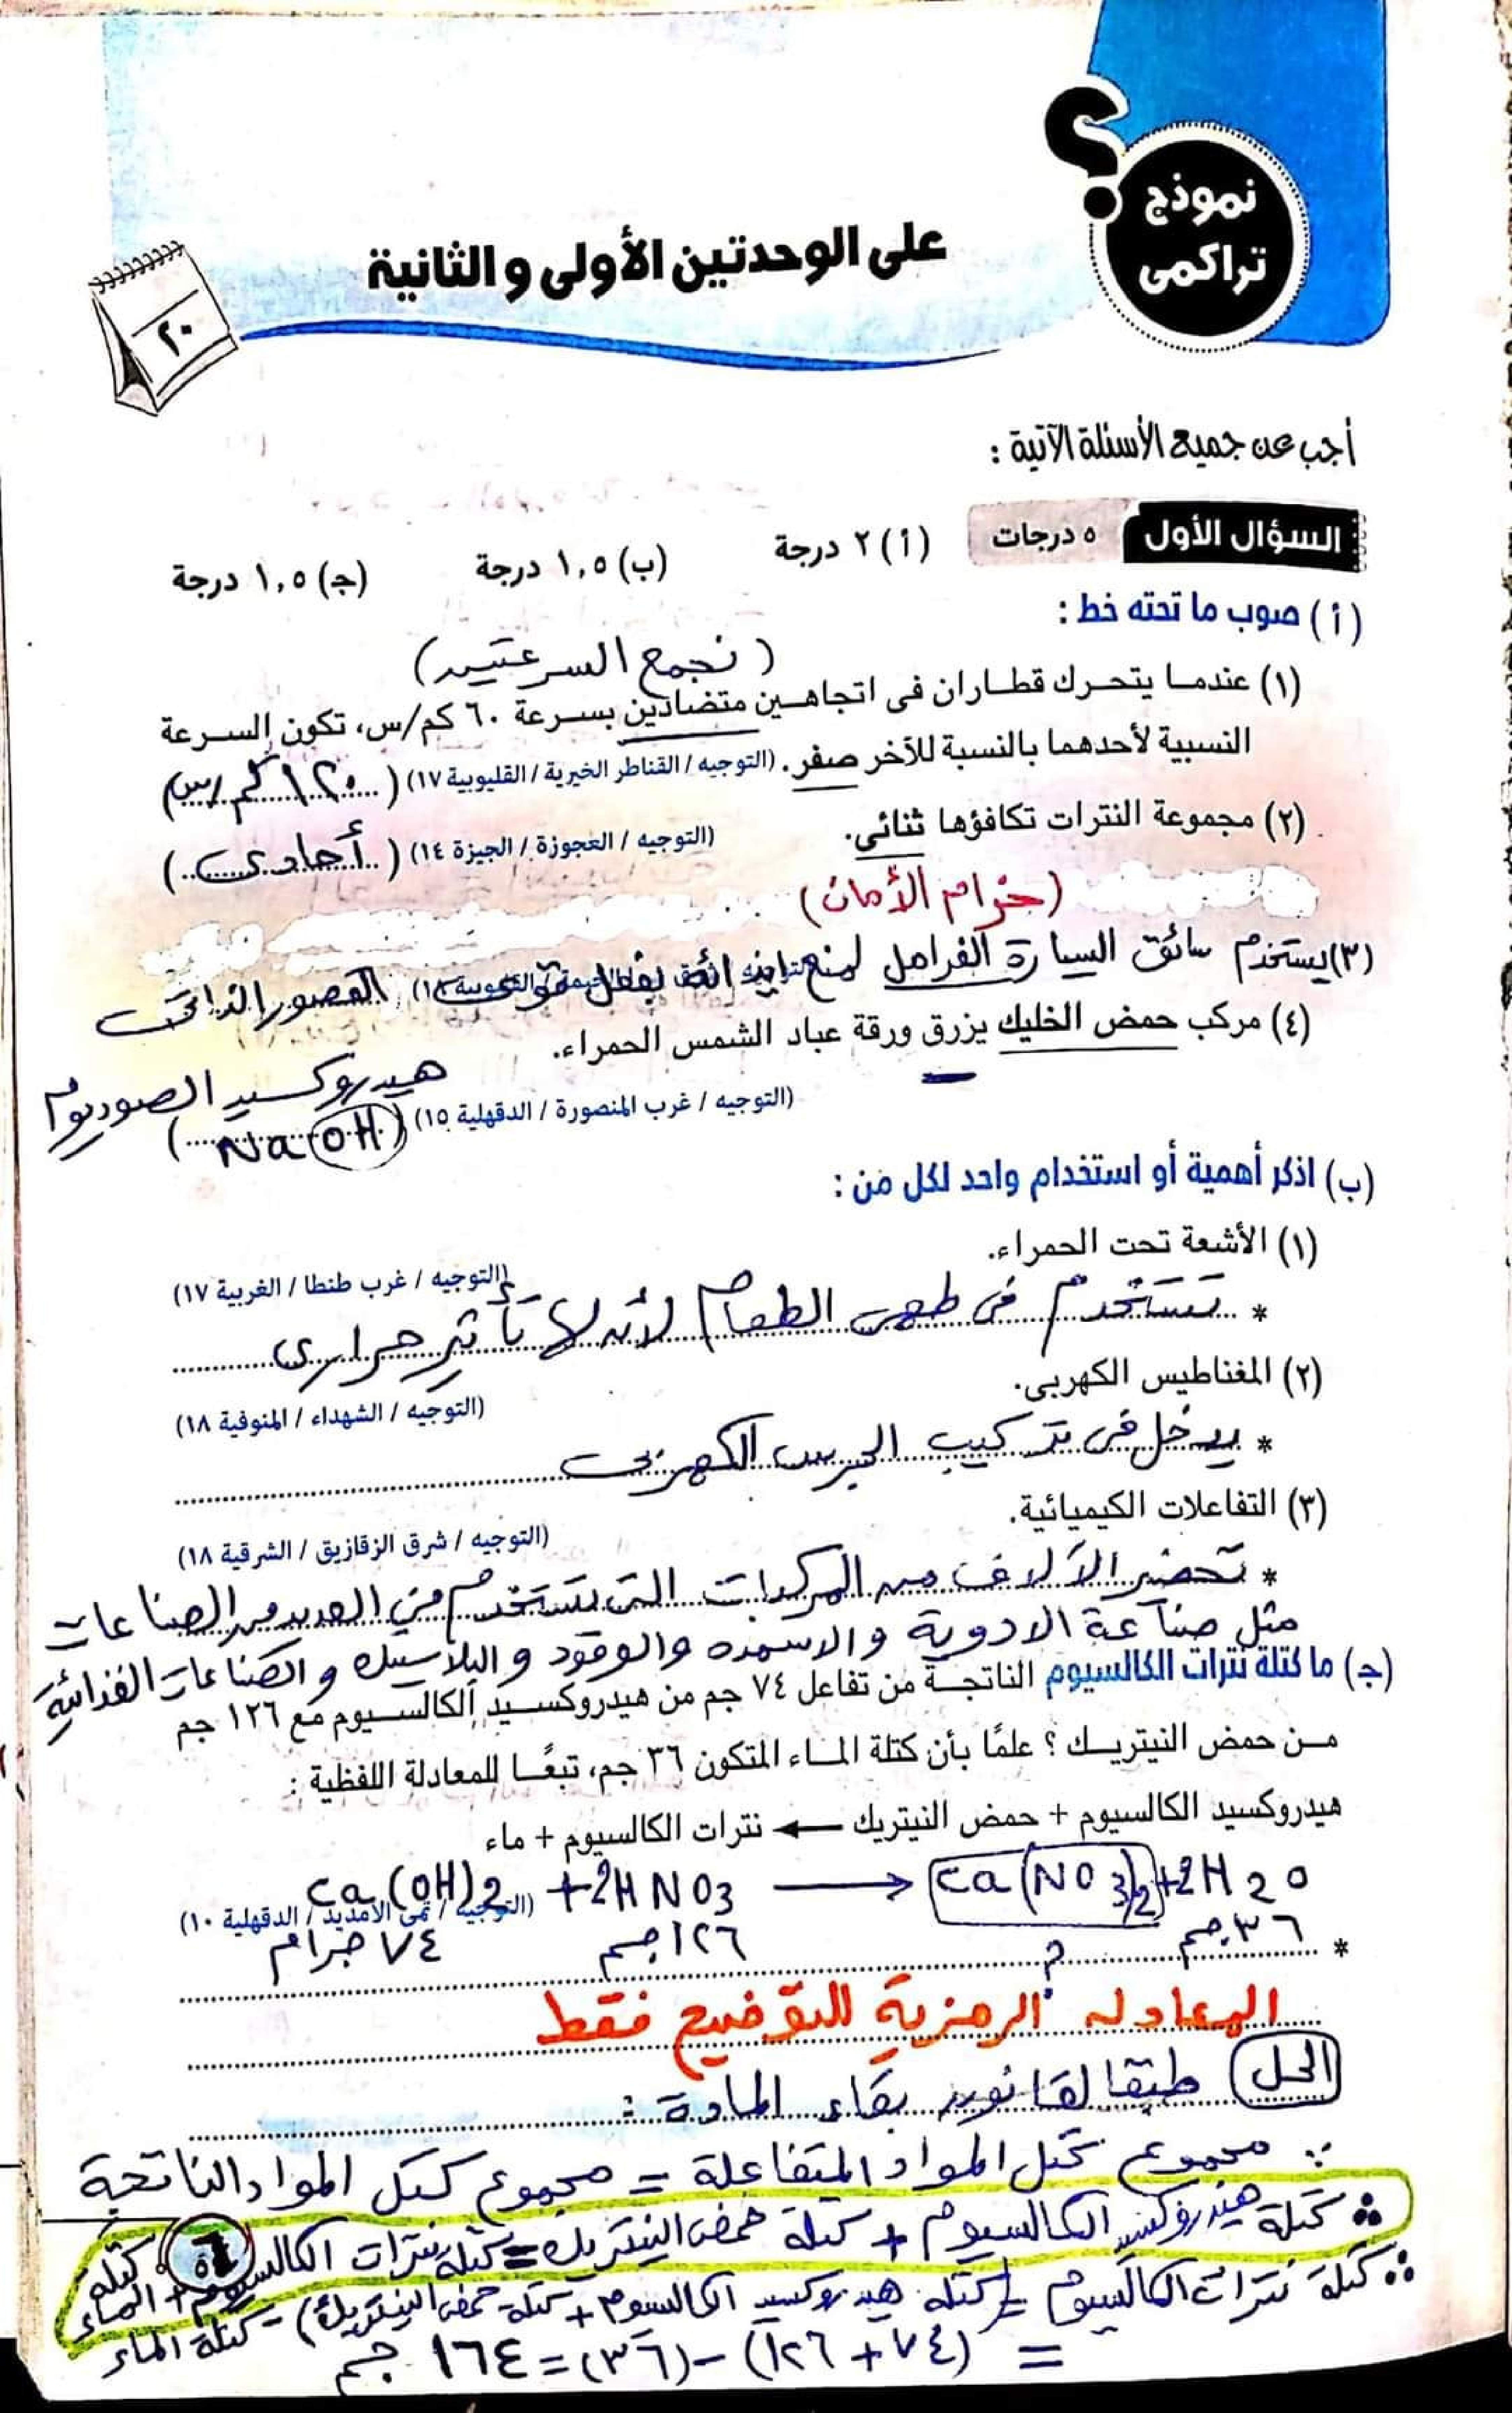 نموذج
تراكمى
؟
على الوحدتين الأولى و الثانية
٢٠
أجب عن جميع الأسئلة الآتية :
السؤال الأول ٥ درجات (أ) ٢ درجة (ب) ١,٥ درجة (ج) ١,٥ درجة
(أ) صوب ما تحته خط :
(نجمع السرعتين)
(١) عندما يتحرك قطاران فى اتجاهين متضادين بسرعة ٦٠ كم/س، تكون السرعة
النسبية لأحدهما بالنسبة للآخر صفر. (التوجيه / القناطر الخيرية / القليوبية ١٧) (١٢٠ كم/س)
(٢) مجموعة النترات تكافؤها ثنائى. (التوجيه / العجوزة / الجيزة ١٤) (أحادى)
(حزام الأمان)
(٣) يستخدم سائق السيارة الفرامل لمنع إيذائه بفعل قوى القصور الذاتى
(٤) مركب حمض الخليك يزرق ورقة عباد الشمس الحمراء.
هيدروكسيد الصوديوم
(التوجيه / غرب المنصورة / الدقهلية ١٥) (NaOH)
(ب) اذكر أهمية أو استخدام واحد لكل من :
(١) الأشعة تحت الحمراء.
(التوجيه / غرب طنطا / الغربية ١٧)
* تستخدم فى طهى الطعام لأنه لها تأثير حرارى
(٢) المغناطيس الكهربى.
(التوجيه / الشهداء / المنوفية ١٨)
* يدخل فى تركيب الجرس الكهربى
(٣) التفاعلات الكيميائية.
(التوجيه / شرق الزقازيق / الشرقية ١٨)
* تحضير الآلاف من المركبات التى تستخدم فى العديد من الصناعات
مثل صناعة الادوية والاسمده والوقود و البلاستيك و الصناعات الغذائية
(ج) ما كتلة نترات الكالسيوم الناتجة من تفاعل ٧٤ جم من هيدروكسيد الكالسيوم مع ١٢٦ جم
من حمض النيتريك ؟ علمًا بأن كتلة الماء المتكون ٣٦ جم، تبعًا للمعادلة اللفظية :
هيدروكسيد الكالسيوم + حمض النيتريك ← نترات الكالسيوم + ماء
Ca(OH)2 + 2HNO3 → Ca(NO3)2 + 2H2O
(التوجيه / تمى الأمديد / الدقهلية ١٠)
* ٧٤ جرام ١٢٦ جم ؟ ٣٦ جم
المعادله الرمزية للتوضيح فقط
الحل طبقا لقانون بقاء المادة :
∵ مجموع كتل المواد المتفاعلة = مجموع كتل المواد الناتجة
∴ كتلة هيدروكسيد الكالسيوم + كتلة حمض النيتريك = كتلة نترات الكالسيوم + كتلة الماء
∴ كتلة نترات الكالسيوم = (كتلة هيدروكسيد الكالسيوم + كتلة حمض النيتريك) - كتلة الماء
= (٧٤ + ١٢٦) - (٣٦) = ١٦٤ جم